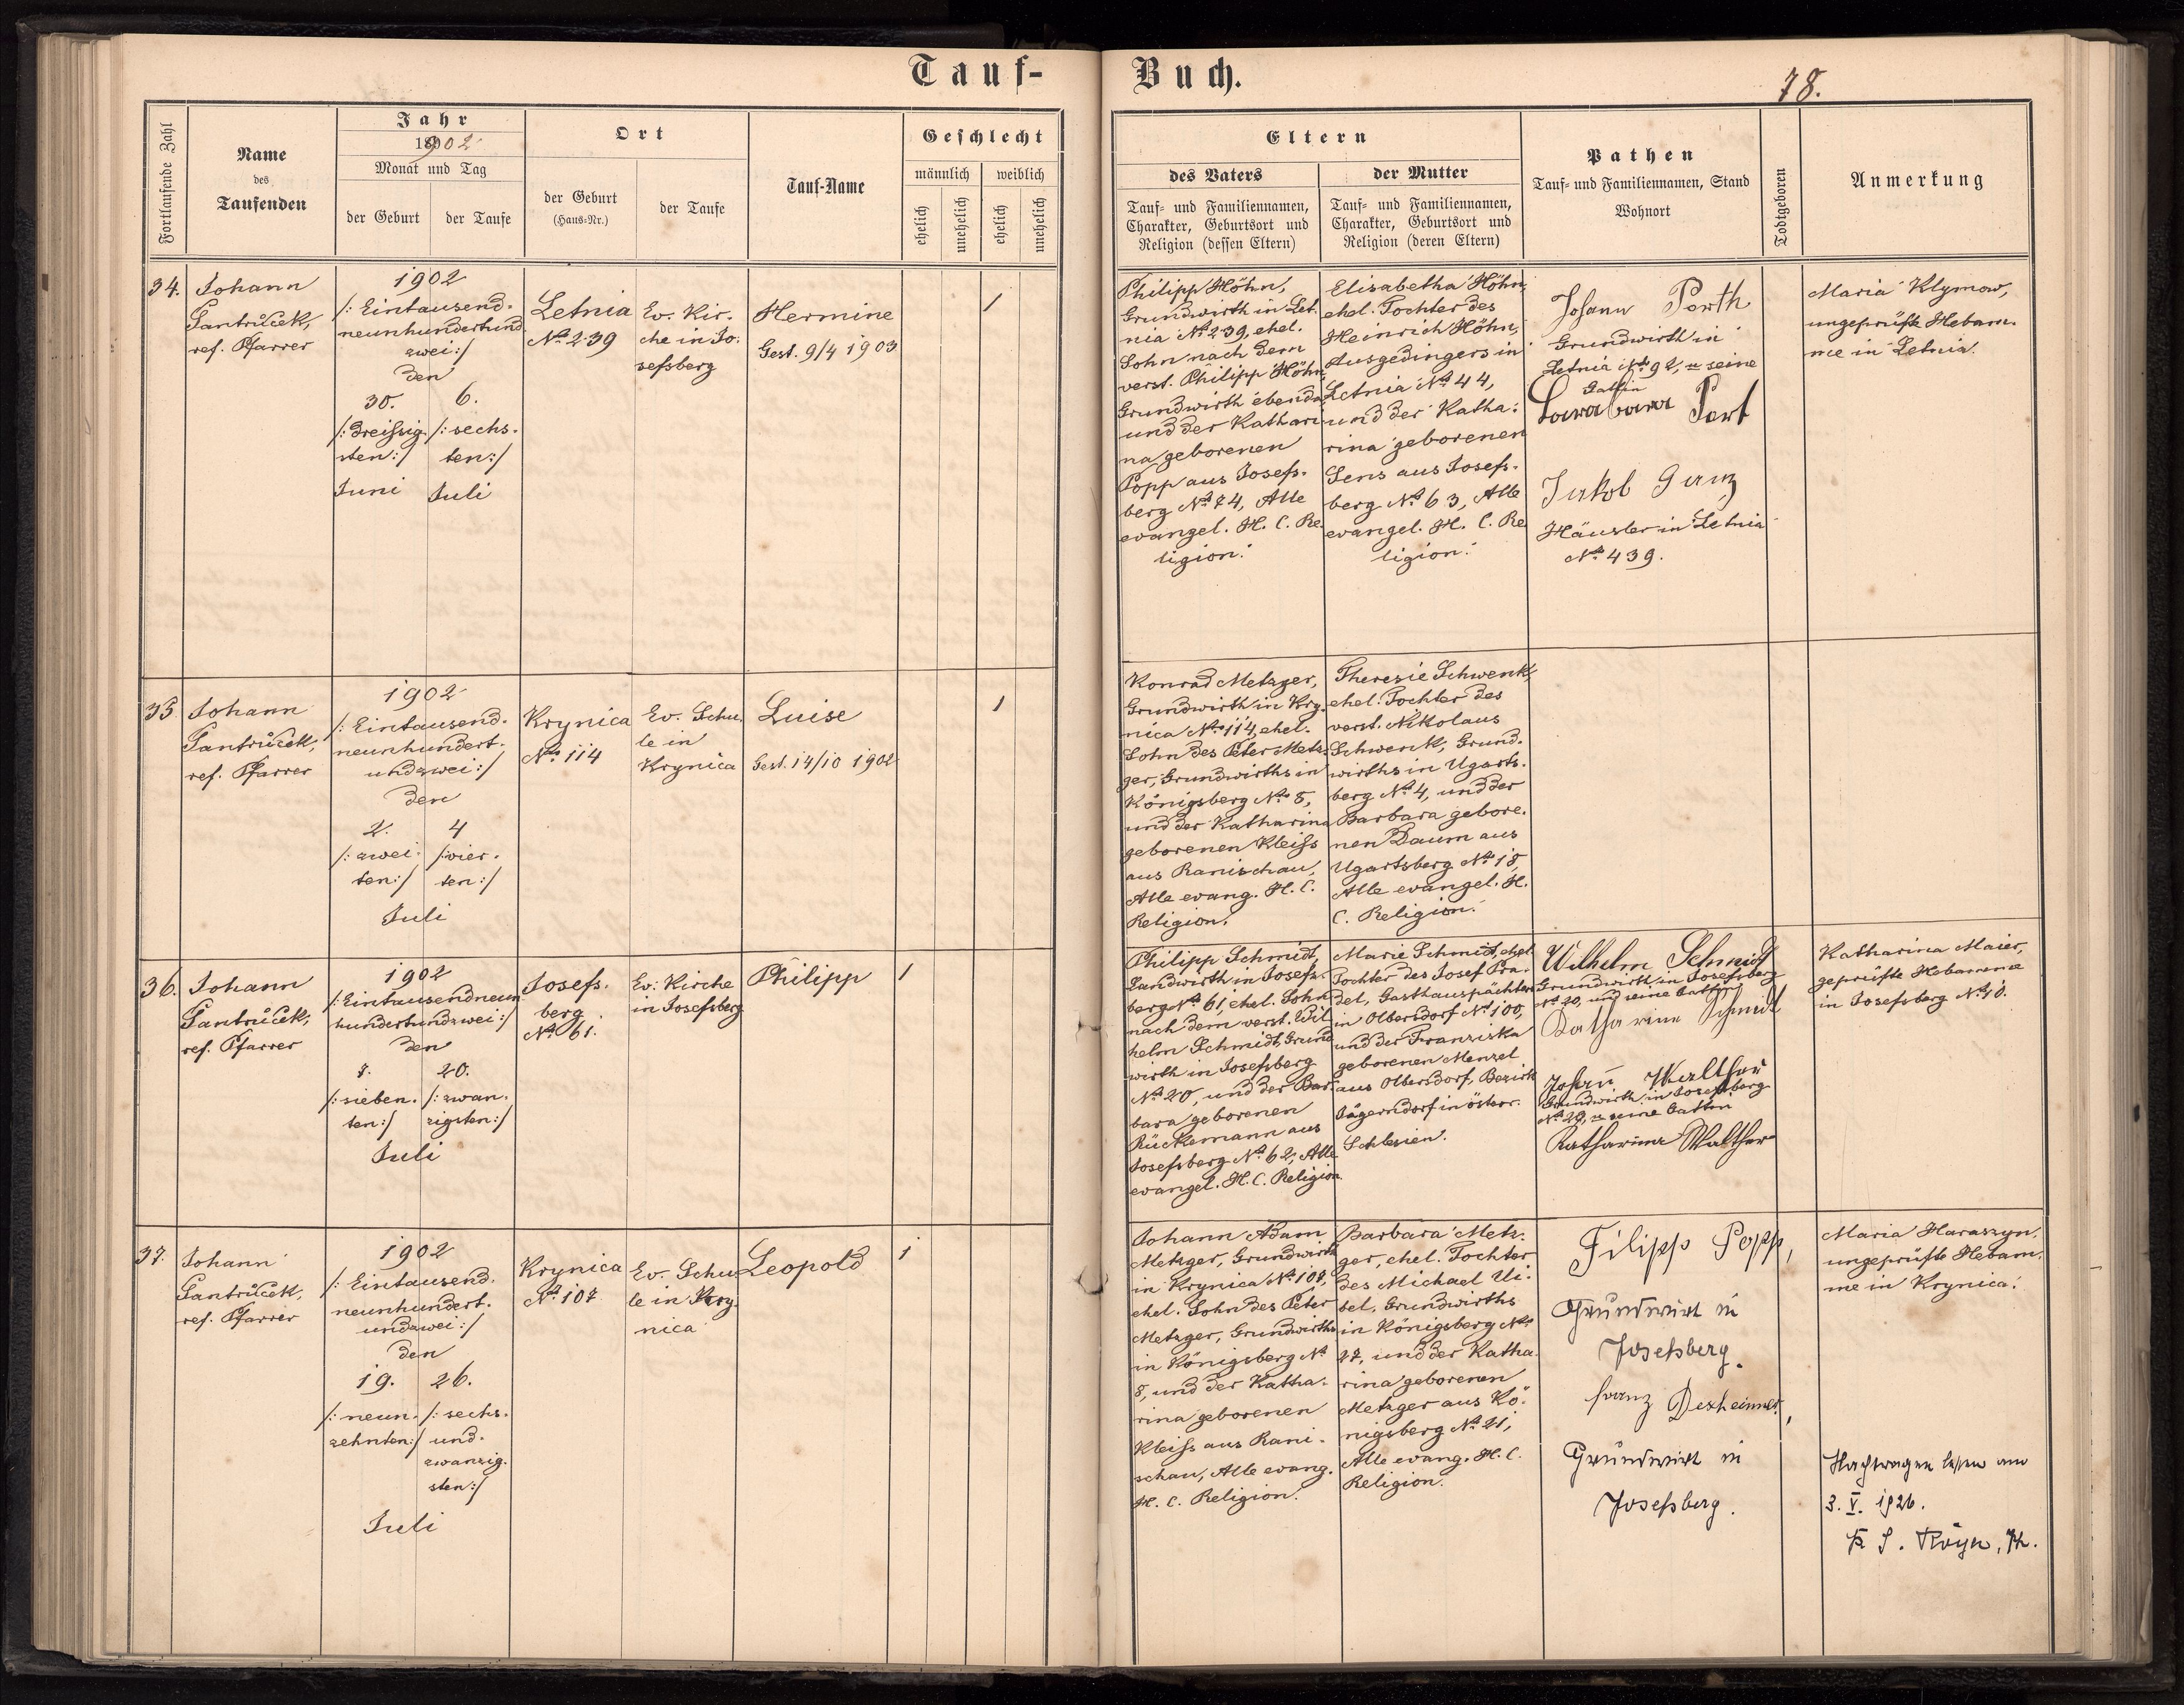 Tauf-
Buch.
78.
Fortlaufende Zahl
Name
des
Taufenden
Jahr
1902
Monat und Tag
der Geburt
der Taufe
Ort
der Geburt
(Haus-Nr.)
der Taufe
Tauf-Name
Geschlecht
männlich
weiblich
ehelich
unehelich
ehelich
unehelich
Eltern
des Vaters
Tauf- und Familiennamen,
Charakter, Geburtsort und
Religion (dessen Eltern)
der Mutter
Tauf- und Familiennamen,
Charakter, Geburtsort und
Religion (deren Eltern)
Pathen
Tauf- und Familiennamen, Stand
Wohnort
Todtgeboren
Anmerkung
34.
Johann
Jantrůček,
ref. Pfarrer
1902
/: Eintausend-
neunhundertund
zwei :/
den
30.
/: dreissig-
sten :/
Juni
6.
/: sechs-
ten :/
Juli
Letnia
No. 239
Ev. Kir-
che in Jo-
sefsberg
Hermine
Gest. 9/4 1903
1
Philipp Höhn,
Grundwirth in Let-
nia No. 239, ehel.
Sohn nach dem
verst. Philipp Höhn,
Grundwirth ebenda
und der Kathari-
na geborenen
Popp aus Josefs-
berg No. 74, Alle
evangel. H. C. Re-
ligion.
Elisabetha Höhn,
ehel. Tochter des
Heinrich Höhn,
Ausgedingers in
Letnia No. 44,
und der Katha-
rina geborenen
Sens aus Josefs-
berg No. 63, Alle
evangel. H. C. Re-
ligion.
Johann Porth
Grundwirth in
Letnia No. 92, u. seine
Gattin
Port
Jakob Ganz
Häusler in Letnia
No. 439.
Maria Klymow,
ungeprüfte Hebam-
me in Letnia.
35.
Johann
Jantrůček,
ref. Pfarrer
1902
/: Eintausend-
neunhundert-
undzwei :/
den
2.
/: zwei-
ten :/
4
/: vier-
ten :/
Juli
Krynica
No. 114
Ev. Schu-
le in
Krynica
Luise
Gest. 14/10 1902
1
Konrad Metzger,
Grundwirth in Kry-
nica No. 114, ehel.
Sohn des Peter Metz-
ger, Grundwirths in
Königsberg No. 8,
und der Katharina
geborenen Kleiss
aus Ranischau,
Alle evang. H. C.
Religion.
Theresie Schwenk,
ehel. Tochter des
verst. Nikolaus
Schwenk, Grund-
wirths in Ugarts-
berg No. 4, und der
Barbara gebore-
nen Daum aus
Ugartsberg No. 18,
Alle evangel. H.
C. Religion.
36.
Johann
Jantrůček,
ref. Pfarrer
1902
/: Eintausendneun-
hundertundzwei :/
den
7.
/: sieben-
ten :/
20.
/: zwan-
zigsten :/
Juli
Josefs-
berg
No. 61.
Ev. Kirche
in Josefsberg
Philipp
1
Philipp Schmidt,
Landwirth in Josefs-
berg No. 61, ehel. Sohn
nach dem verst. Wil-
helm Schmidt, Grund-
wirth in Josefsberg
No. 20, und der Bar-
bara geborenen
Rückemann aus
Josefsberg No. 62, Alle
evangel. H. C. Religion.
Marie Schmidt, ehel.
Tochter des Josef Pra-
del, Gasthauspächters
in Olbersdorf No. 100,
und der Franziska
geborenen Menzel
aus Olbersdorf, Bezirk
Jägerndorf in österr.
Schlesien.
Wilhelm Schmidt
Grundwirth in Josefsberg
No. 20, und seine Gattin
Katharina Schmidt
Johann Walther
Grundwirth in Josefsberg
No. 29, u. seine Gattin
Katharina Walther
Katharina Maier,
geprüfte Hebamme
in Josefsberg No. 18.
37.
Johann
Jantrůček,
ref. Pfarrer
1902
/: Eintausend-
neunhundert-
undzwei :/
den
19.
/: neun-
zehnten :/
26.
/: sechs-
und-
zwanzig-
sten :/
Juli
Krynica
No. 107
Ev. Schu-
le in Kry-
nica
Leopold
1
Johann Adam
Metzger, Grundwirth
in Krynica No. 107,
ehel. Sohn des Peter
Metzger, Grundwirths
in Königsberg No.
8, und der Katha-
rina geborenen
Kleiss aus Rani-
schau, Alle evang.
H. C. Religion.
Barbara Metz-
ger, ehel. Tochter
des Michael Ui-
bel, Grundwirths
in Königsberg No.
27, und der Katha-
rina geborenen
Metzger aus Kö-
nigsberg No. 21,
Alle evang. H. C.
Religion.
Filipp Popp,
Grundwirt in
Josefsberg.
Franz Dexheimer,
Grundwirt in
Josefsberg.
Maria Haraszyn,
ungeprüfte Hebam-
me in Krynica.
Nachtragen lassen am
3. V. 1926.